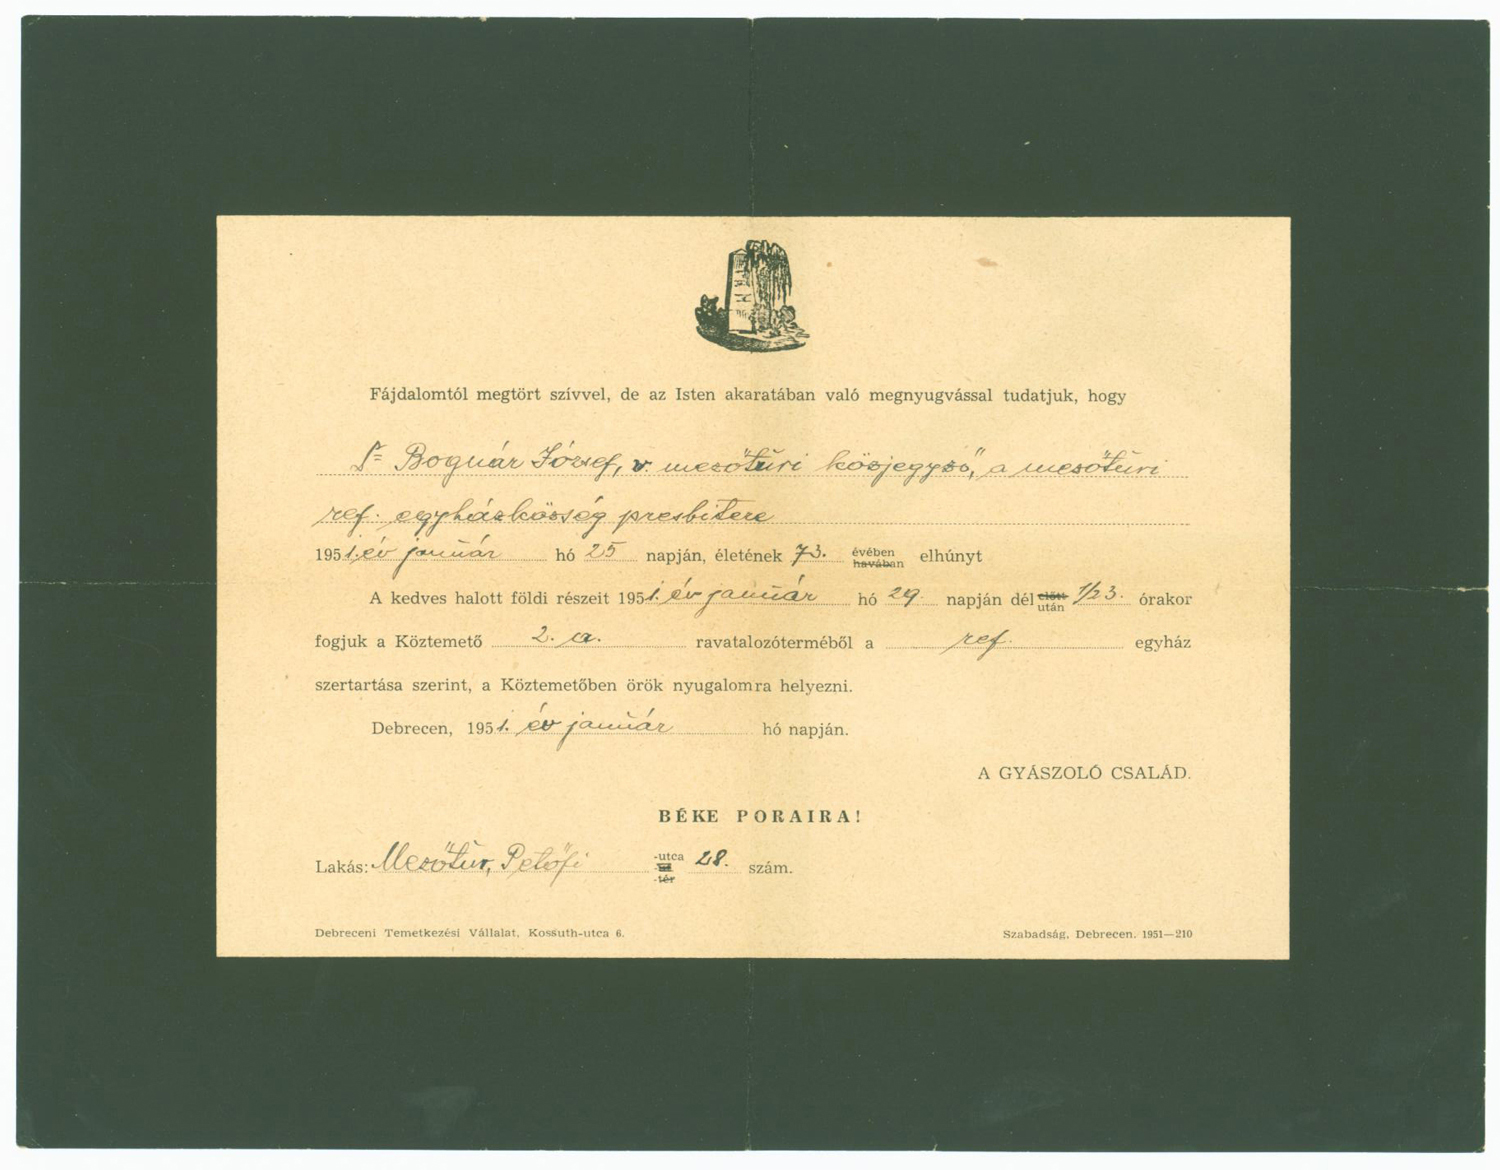 Fájdalomtól megtört szívvel, de az Isten akaratában való megnyugvással tudatjuk, hogy
Dr Bognár József, v. mezőtúri közjegyző, a mezőtúri
ref. egyházközség presbitere
1951. év január hó 25 napján, életének 73. évében havában elhúnyt
A kedves halott földi részeit 1951. év január hó 29. napján dél előtt után 1/23. órakor
fogjuk a Köztemető 2. a. ravatalozóterméből a ref. egyház
szertartása szerint, a Köztemetőben örök nyugalomra helyezni.
Debrecen, 1951. év január hó napján.
A GYÁSZOLÓ CSALÁD.
BÉKE PORAIRA!
Lakás: Mezőtúr, Petőfi -utca -út -tér 28. szám.
Debreceni Temetkezési Vállalat, Kossuth-utca 6. Szabadság, Debrecen. 1951—210